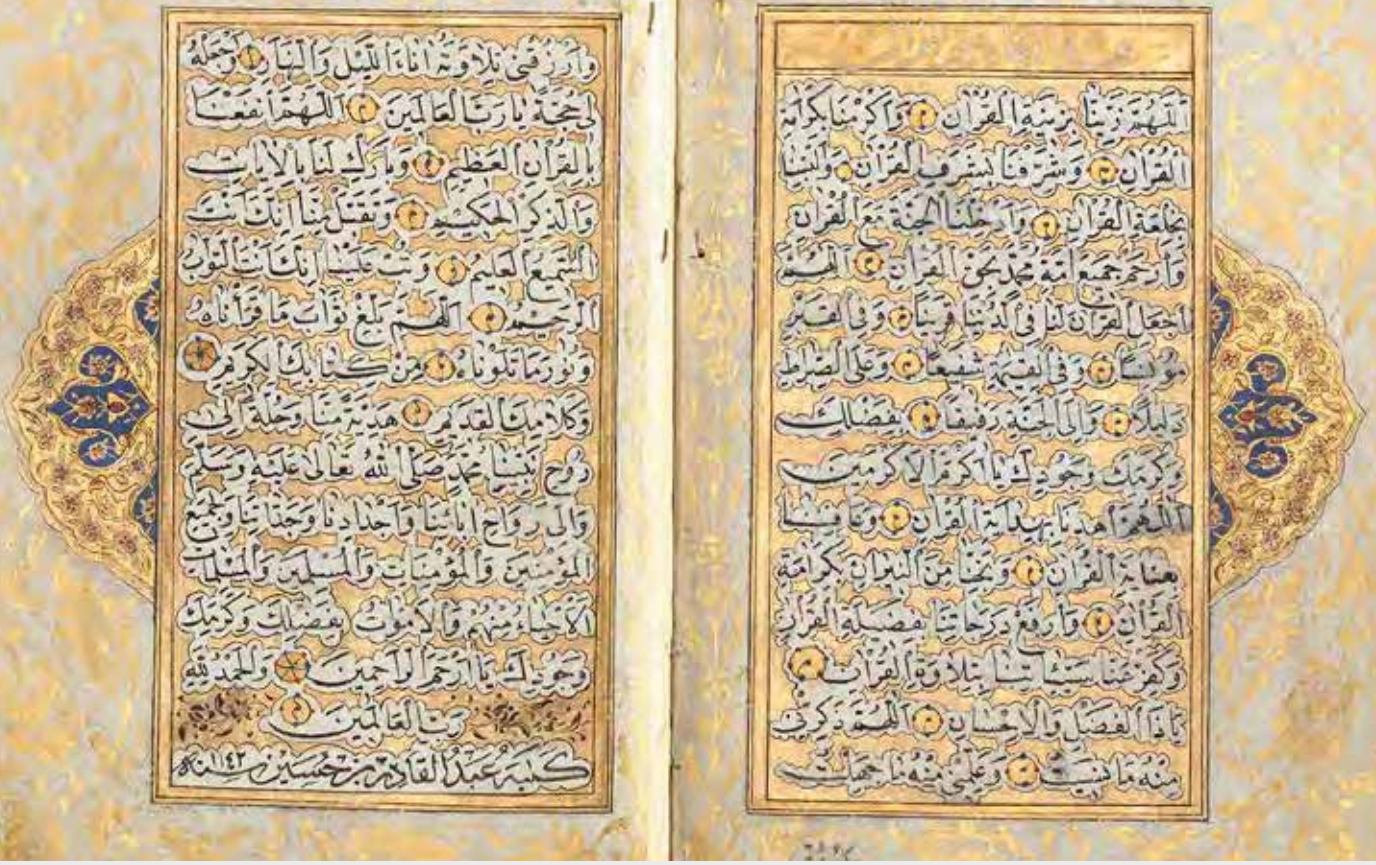 اللهم زينا بزينة القرآن وأكرمنا بكرامة
القرآن وشرفنا بشرف القرآن وألبسنا
بخلعة القرآن وأدخلنا الجنة مع القرآن
وأرحم جميع أمة محمد بحق القرآن اللهم
اجعل القرآن لنا في الدنيا قريبا وفي القبر
مونسا وفي القيمة شفيعا وعلى الصراط
دليلا وإلى الجنة رفيقا بفضلك
وكرمك وجودك يا أكرم الأكرمين
اللهم اهدنا بهداية القرآن وعافنا
بعناية القرآن ونجنا من النيران بكرامة
القرآن وأرفع درجاتنا بفضيلة القرآن
وكفر عنا سيئاتنا بتلاوة القرآن
يا ذا الفضل والإحسان اللهم ذكرني
منه ما نسيت وعلمني منه ما جهلت
وارزقني تلاوته اناء الليل والنهار واجعله
لي حجة يا رب العالمين اللهم انفعنا
بالقرآن العظيم وبارك لنا بالآيات
والذكر الحكيم وتقبل منا إنك أنت
السميع العليم وتب علينا إنك أنت التواب
الرحيم اللهم بلغ ثواب ما قرأناه
ونور ما تلوناه من كتابك الكريم
وكلامك القديم هدية منا وصلة إلى
روح نبينا محمد صلى الله تعالى عليه وسلم
وإلى أرواح آبائنا وأجدادنا وجداتنا وجميع
المؤمنين والمؤمنات والمسلمين والمسلمات
الأحياء منهم والأموات بفضلك وكرمك
وجودك يا أرحم الراحمين والحمد لله
رب العالمين
كتبه عبد القادر بن حسين سنة ١١٤٢